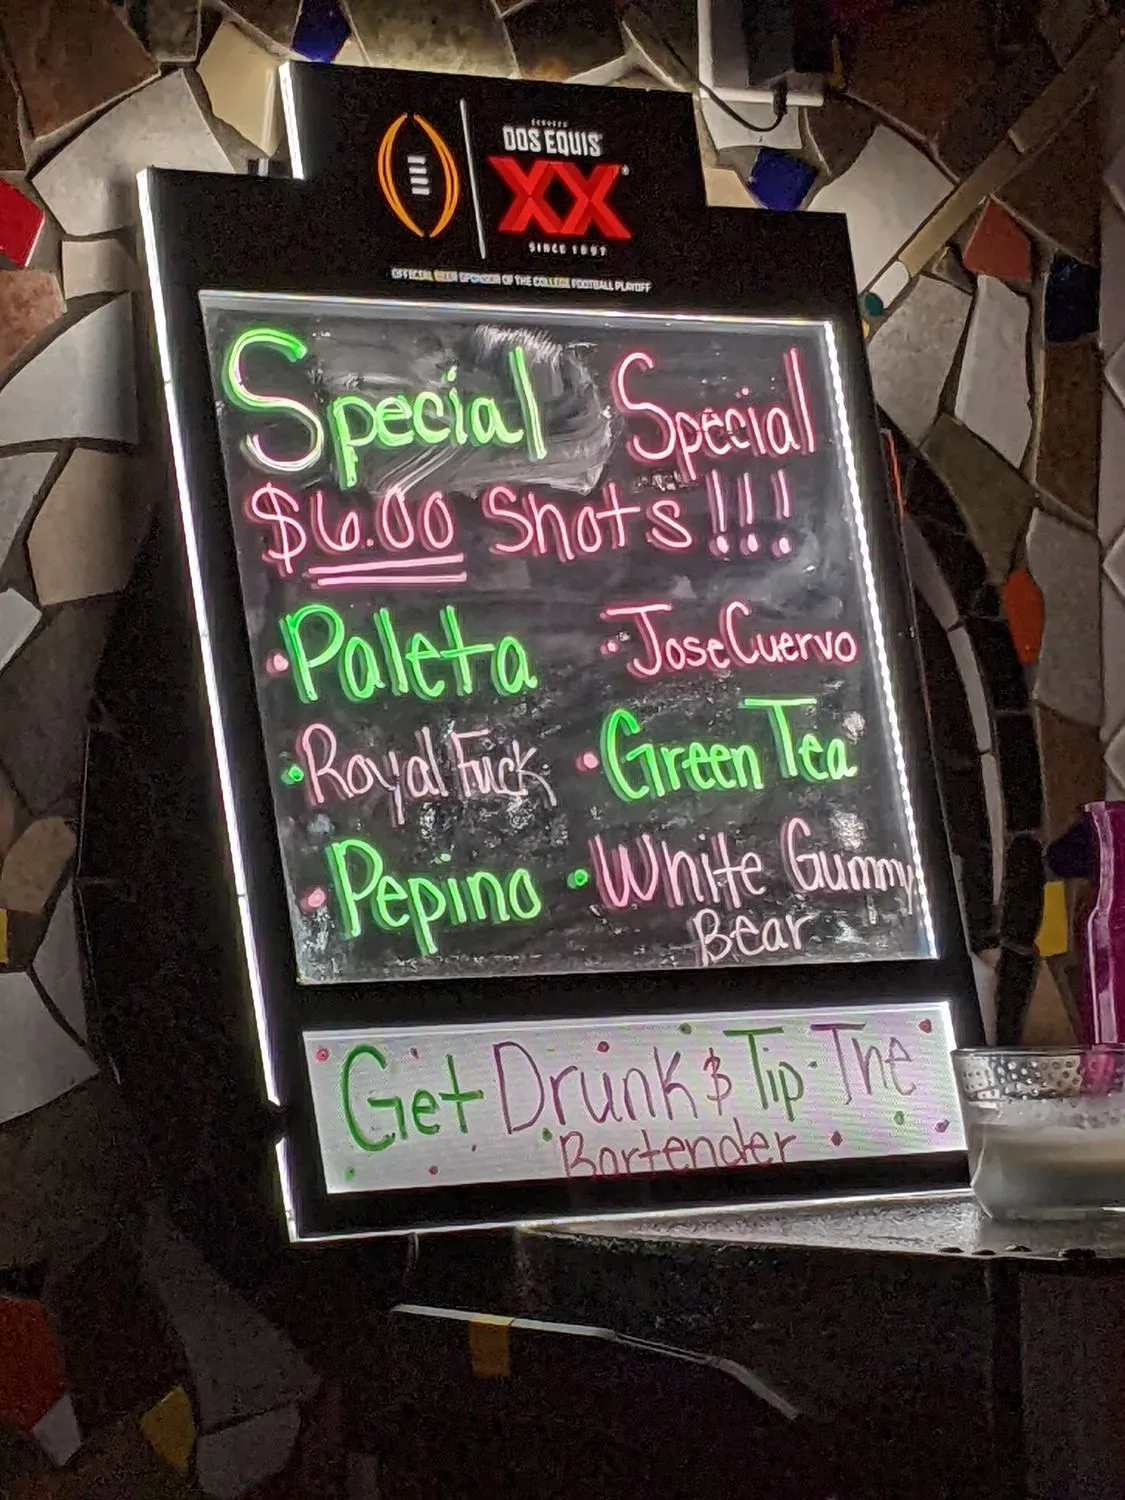 CERVEZA
DOS EQUIS
XX
SINCE 1897
OFFICIAL BEER SPONSOR OF THE COLLEGE FOOTBALL PLAYOFF
Special Special
$6.00 Shots!!!
• Paleta
• Jose Cuervo
• Royal Fuck
• Green Tea
• Pepino
• White Gummy
Bear
Get Drunk & Tip The
Bartender